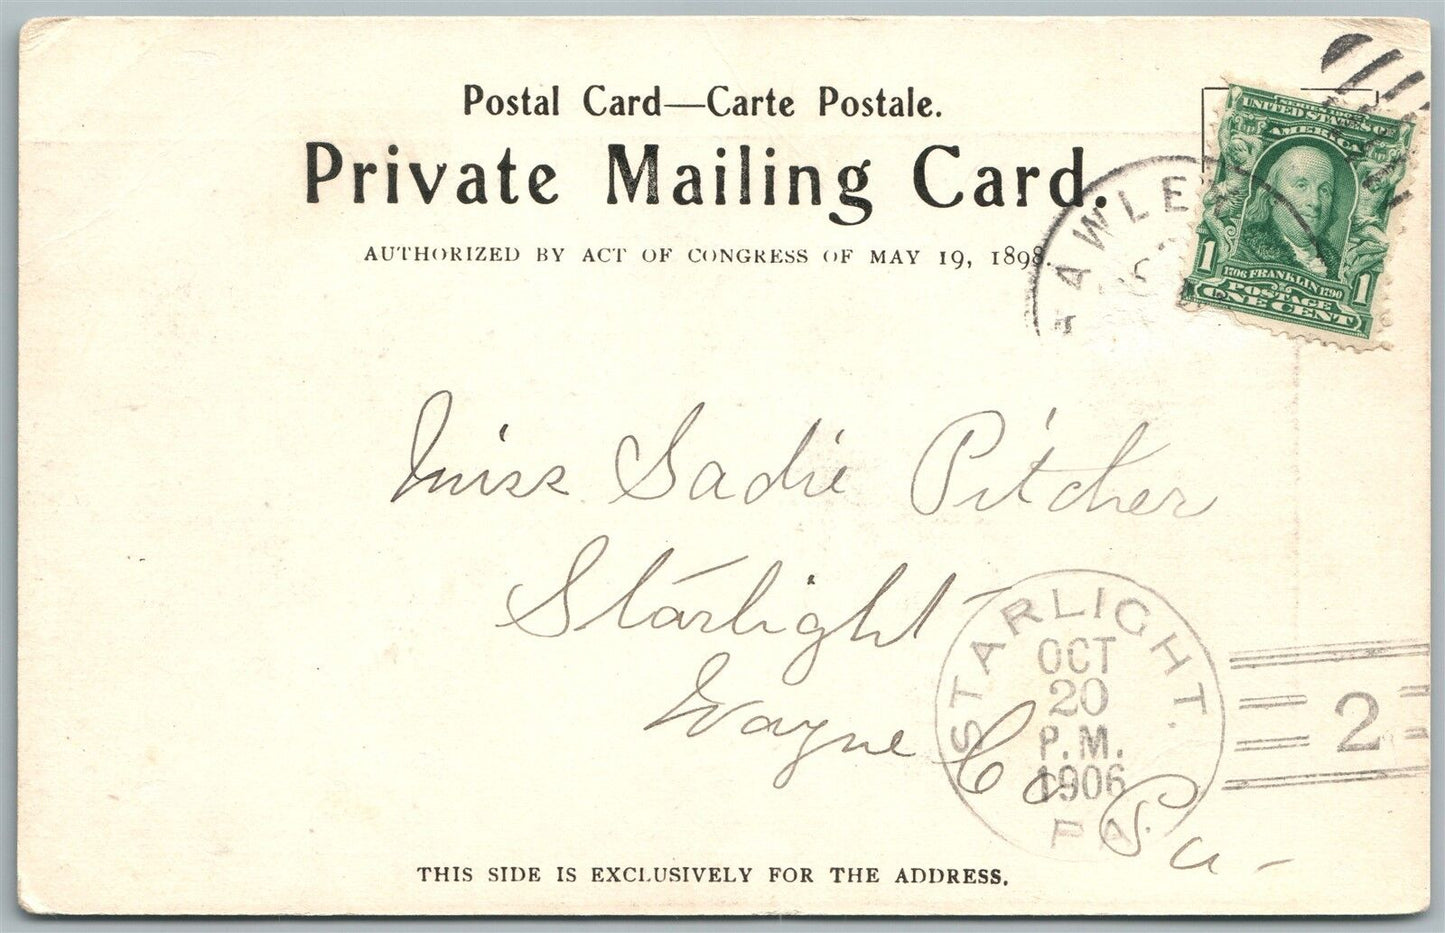 Postal Card—Carte Postale.
Private Mailing Card.
AUTHORIZED BY ACT OF CONGRESS OF MAY 19, 1898.
SERIES
UNITED STATES OF
AMERICA
1706 FRANKLIN 1790
1 1
POSTAGE
ONE CENT
AWLEY
Miss Sadie Pitcher
Starlight
Wayne Co Pa-
STARLIGHT.
OCT
20
P.M.
1906
PA.
2
THIS SIDE IS EXCLUSIVELY FOR THE ADDRESS.